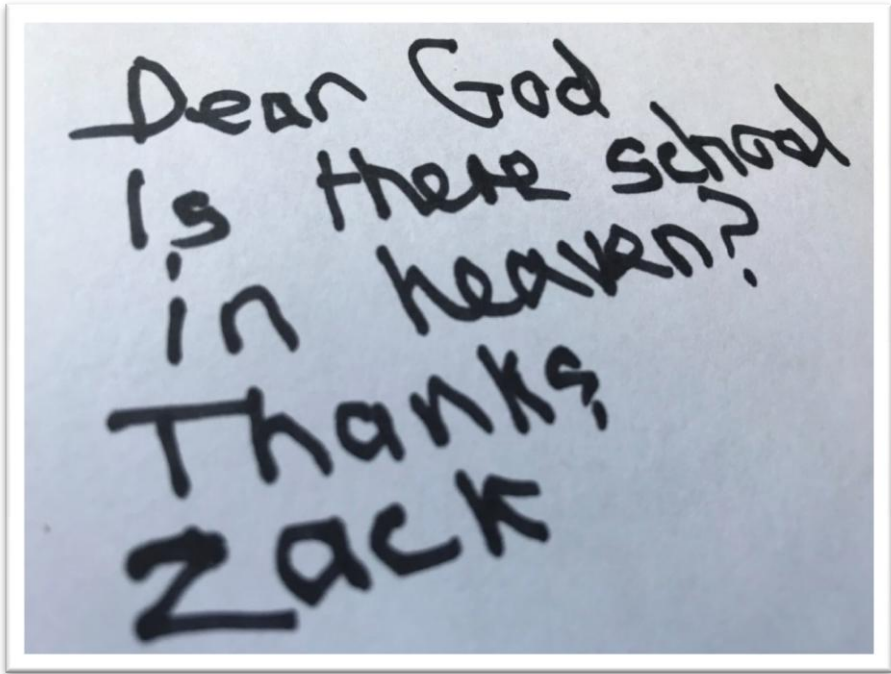 Dear God
Is there school
in heaven?
Thanks,
Zack